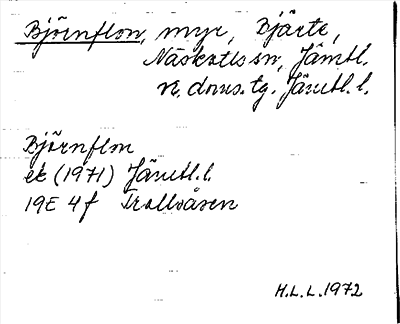 Björnflon, myr, Bjärte,
Näskotts sn, Jämtl.
n. doms.tg. Jämtl. l.
Björnflon
ek (1971) Jämtl. l.
19E 4f Trollåsen
H.L.L. 1972